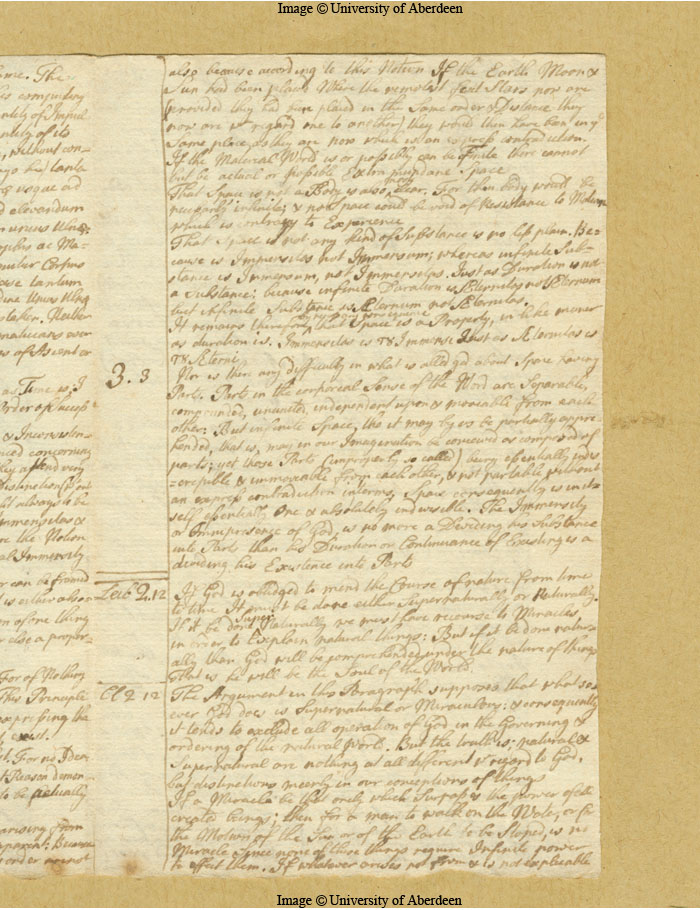 Image © University of Aberdeen
ome. The
his compendiary
antity of its
, without con-
tanta
usque ad
d elevandum
ac Ma-
Corpus
tantum
dine unius Ulnæ
staken. Neither
maticians ever
of Ascent or
as Time is; I
Order of Success
& Inconsisten-
concerning
they attend very
Distinction
t always to be
mmensitas &
the Notion
al Immensity
can be framd
is either also
of one thing
or else a proper-
For of Nothing
This Principle
expressing the
exist.
t. For no
Reason
to be actually
arising from
order are not
3. 3
Leib 2. 12
Cl 2 12
also because according to this Notion If the Earth Moon &
Sun had been placed Where the remotest fixt Stars now are
(provided they had been placed in the same order & Distance they
now are wt regard one to another) they would then have been in ye
same place as they are now which is an express contradiction.
If the Material World is or possibly can be Finite there cannot
but be actual or possible Extramundane Space
That Space is not a Body is also most clear. For then body would be
necessarly infinite; & no space would be void of Resistance to Motion
which is contrary to Experience
That Space is not any kind of Substance is no less plain. Be-
cause is Immensitas not Immensum; whereas infinite Sub-
stance is Immensum, not Immensitas. Just as Duration is not
a Substance; because infinite Duration is Æternitas not Æternum
but infinite Substance is Æternum not Æternitas.
It remains therefore by necessary consequence that Space is a Property, in like maner
as duration is. Immensitas is τȣ Immensi Just as Æternitas is
τȣ Æterni
Nor is there any difficulty in what is alledged about Space having
Parts. Parts in the corporeal Sense of the Word are Separable,
compounded, ununited, independent upon & moveable from each
other: But infinite Space, tho it may by us be partially appre-
hended, that is, may in our Imagination be conceived as composed of
parts; yet those Parts (improperly so called) being essentially indis-
cerpible & immovable from each other, & not partable without
an express contradiction in terms, Space consequently is in it
self essentially One & absolutely indivisible. The Immensity
or Omnipresence of God, is no more a Dividing his Substance
into Parts than his Duration or Continuance of Existing is a
dividing his Existence into Parts
If God is obliged to mend the Course of nature from time
to time It must be done either Supernaturally or Naturally.
If it be done Supernaturally we must have recourse to Miracles
in order to Explain natural things: But if it be done natur-
ally then God will be comprehended under the nature of things
That is he will be the Soul of the World.
The Argument in this Paragraph supposes that what so
ever God does is Supernatural or Miraculous; & consequently
it tends to exclude all operation of God in the Governing &
ordering of the natural World. But the truth is; natural &
Supernatural are nothing at all different wt regard to God,
but distinctions meerly in our conceptions of things
If a Miracle be that only which Surpasses the power of all
created beings; then for a man to walk on the Water, or for
the Motion of the Sun or of the Earth to be Stoped, is no
Miracle since none of those things require Infinite power
to effect them. If whatever arises not from & is not explicable
Image © University of Aberdeen